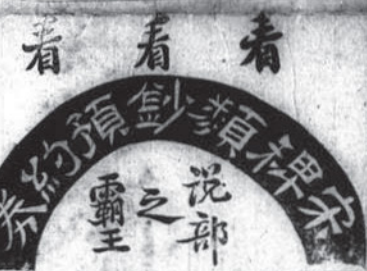 看看看
宋稗類鈔預約券
说部
之
霸王